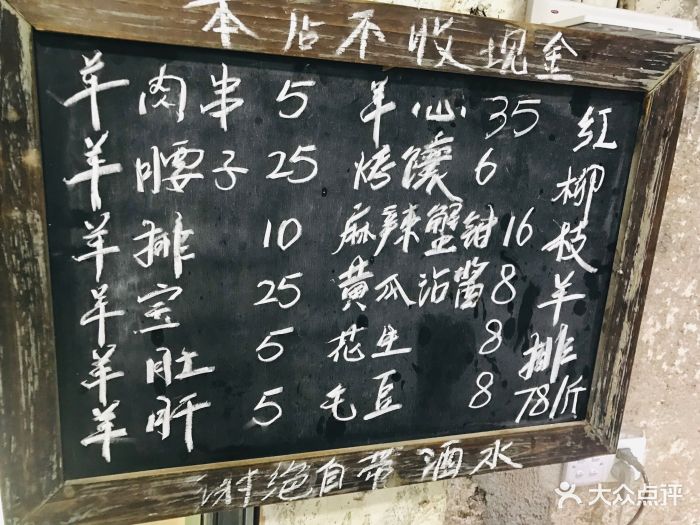 本店不收现金
羊肉串 5 羊心 35
羊腰子 25 烤馕 6
羊排 10 麻辣蟹钳 16
羊宝 25 黄瓜沾酱 8
羊肚 5 花生 8
羊肝 5 毛豆 8
红柳枝羊排
78/斤
谢绝自带酒水
大众点评